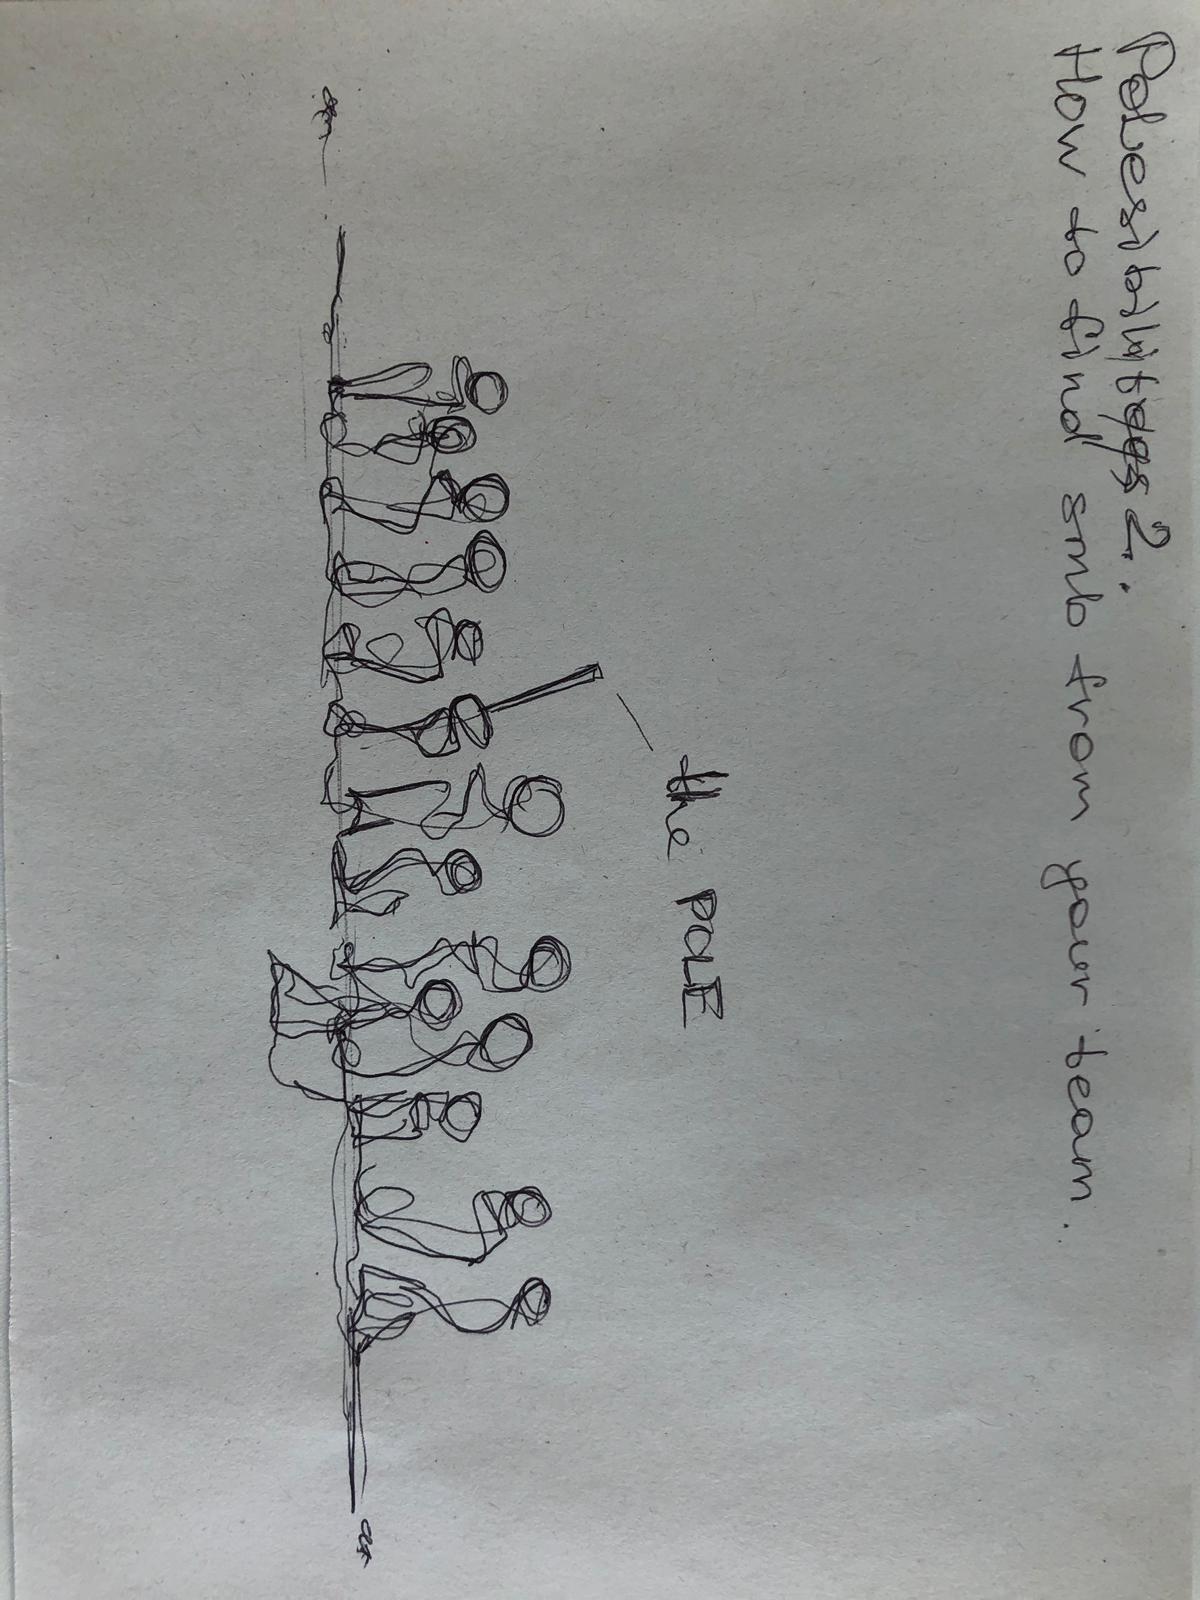 Polesibilities 2.
How to find smb from your team.
the POLE